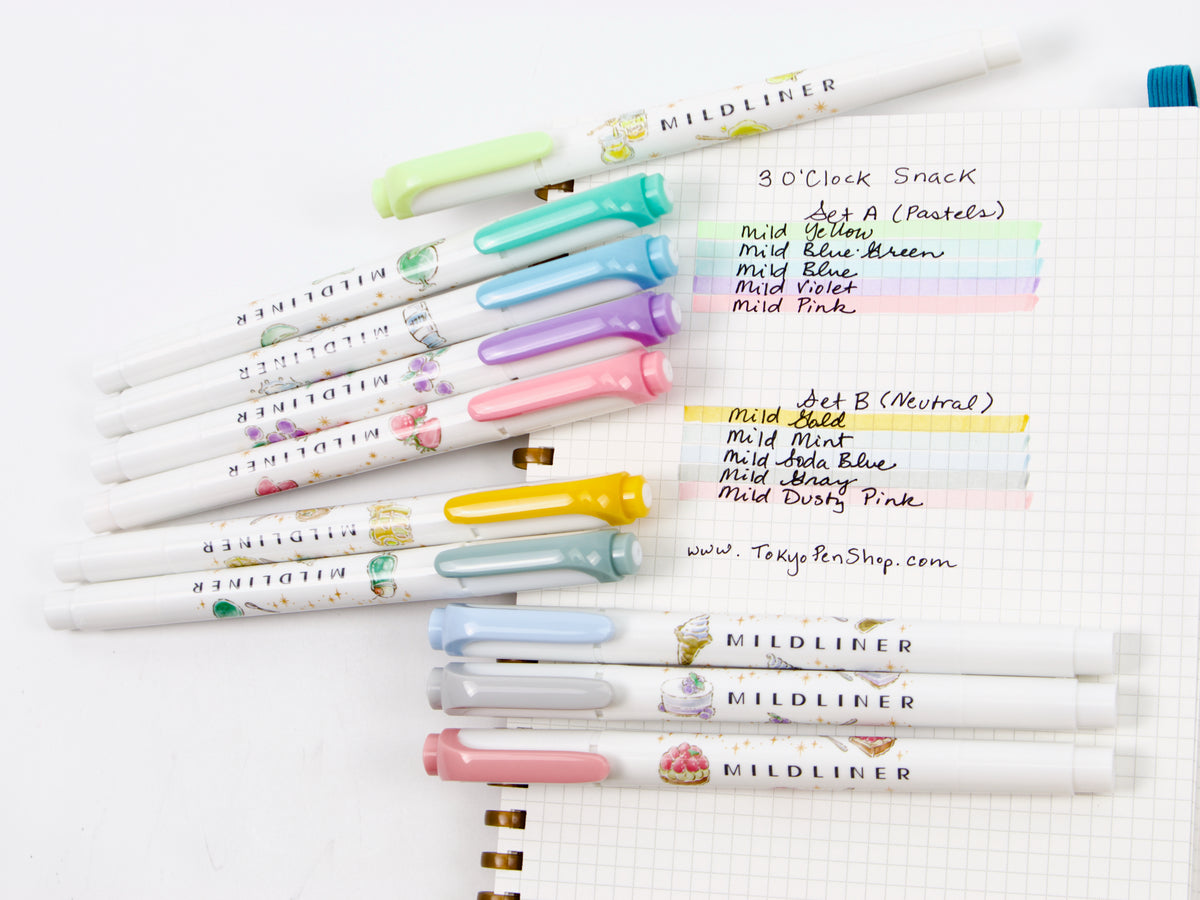 MILDLINER
3 O'Clock Snack
Set A (Pastels)
Mild Yellow
Mild Blue-Green
Mild Blue
Mild Violet
Mild Pink
MILDLINER
MILDLINER
MILDLINER
MILDLINER
Set B (Neutral)
Mild Gold
Mild Mint
Mild Soda Blue
Mild Gray
Mild Dusty Pink
MILDLINER
MILDLINER
www.TokyoPenShop.com
MILDLINER
MILDLINER
MILDLINER